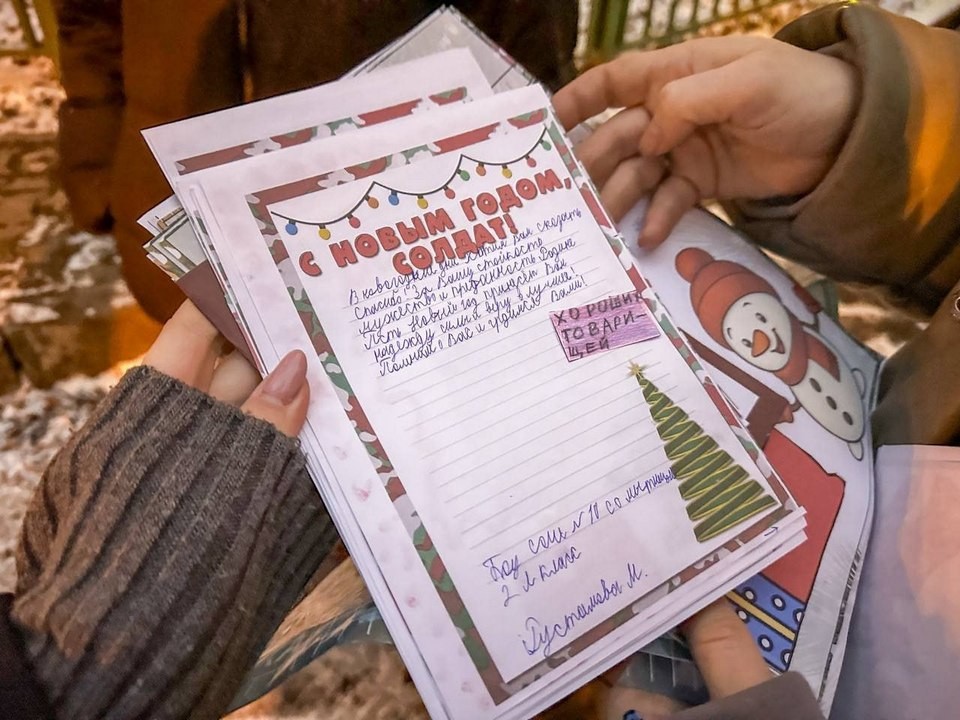 С НОВЫМ ГОДОМ,
СОЛДАТ!
В новогодний дни хотим Вам сказать
спасибо! За Вашу стойкость
мужество и преданность Родине
Пусть Новый год принесёт Вам
надежду силы и веру в лучшее!
Помним о Вас и гордимся Вами!
ХОРОШИХ
ТОВАРИ-
ЩЕЙ
СОШ №10
2 Л класс
Рустамова М.